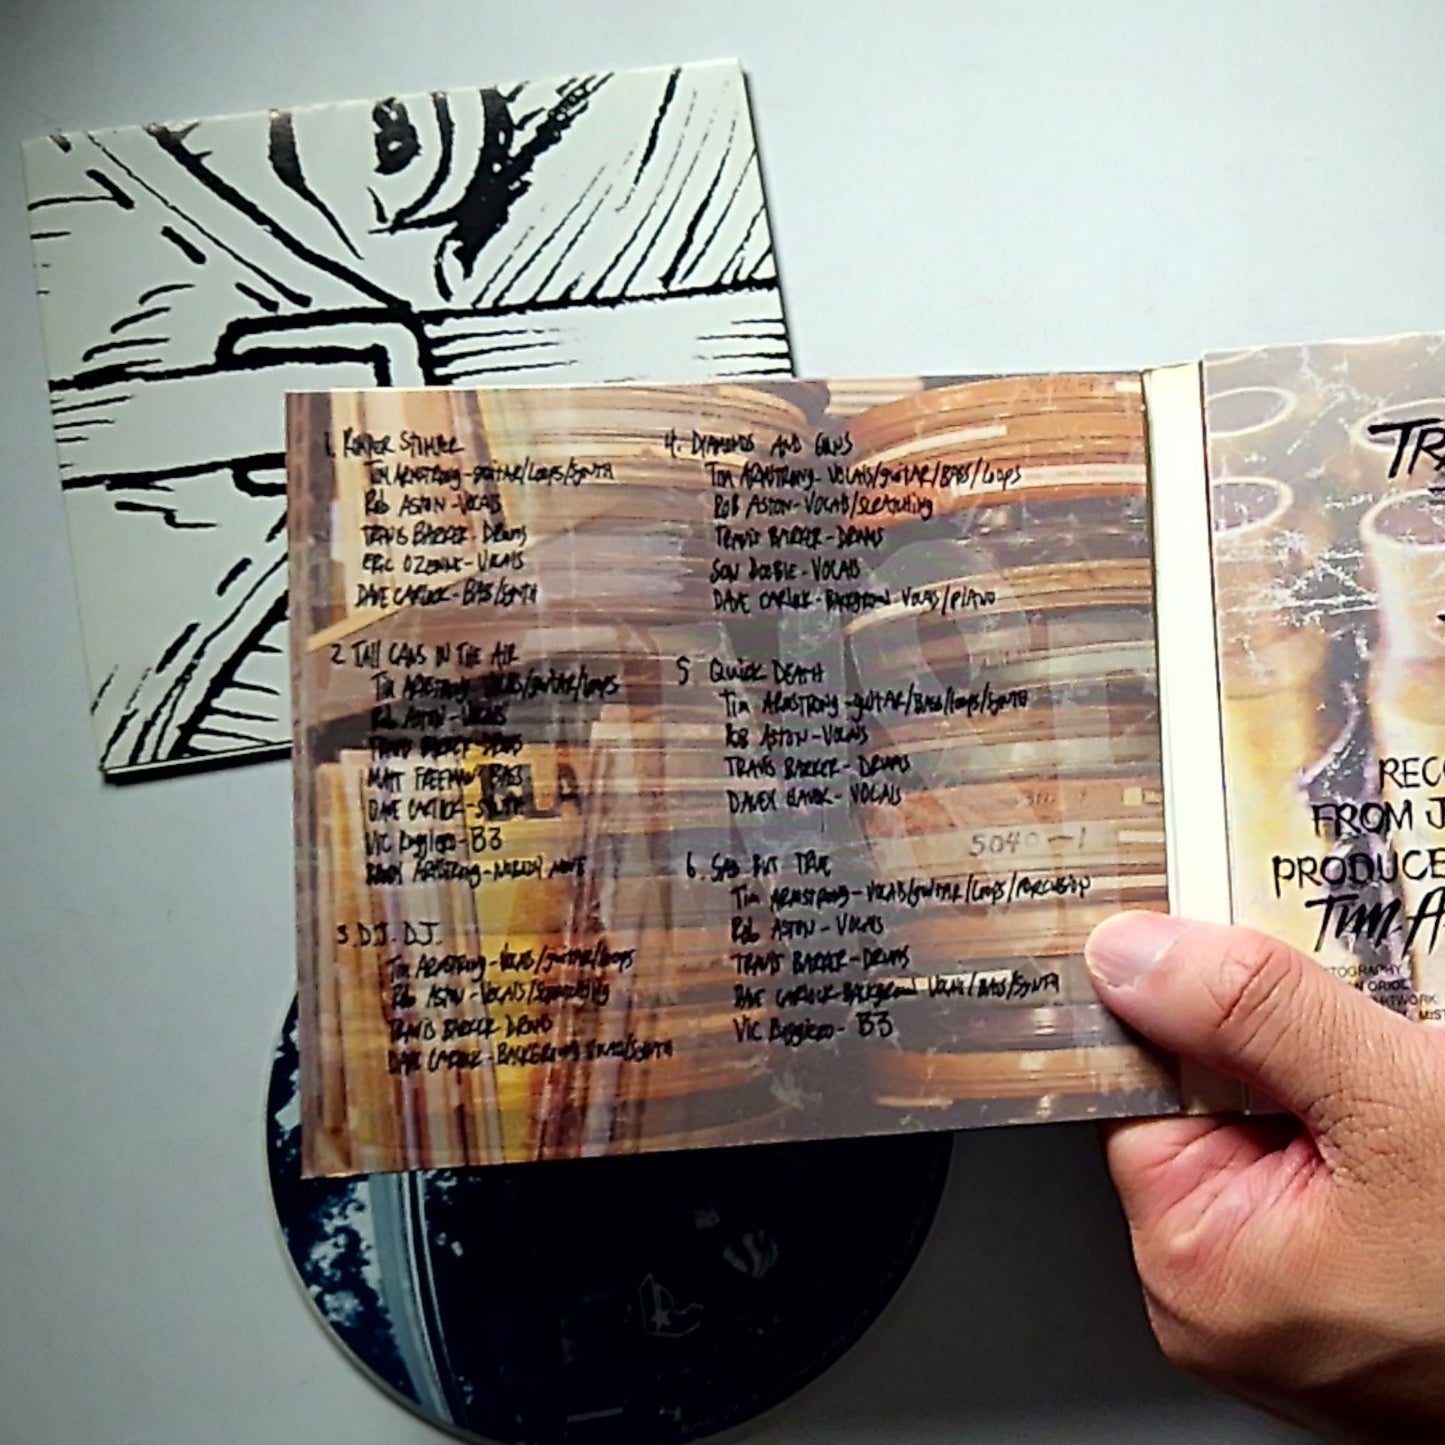 1. RANCER STAMPER
TIM ARMSTRONG - GUITAR/LOOPS/SYNTH
ROB ASTON - VOCALS
TRAVIS BARKER - DRUMS
ERIC OZENNE - VOCALS
DAVE CARLOCK - BASS/SYNTH
2 TALL CANS IN THE AIR
TIM ARMSTRONG VOCALS/GUITAR/LOOPS
ROB ASTON - VOCALS
TRAVIS BARKER DRUMS
MATT FREEMAN BASS
DAVE CARLOCK - SYNTH
VIC RUGGIERO - B3
ARMSTRONG - NOBODY MOVE
3. DJ. DJ.
TIM ARMSTRONG - VOCALS/GUITAR/LOOPS
ROB ASTON - VOCALS/SCRATCHING
TRAVIS BARKER DRUMS
DAVE CARLOCK - BACKGROUND VOCALS/SYNTH
4. DIAMONDS AND GUNS
TIM ARMSTRONG - VOCALS/GUITAR/BASS/LOOPS
ROB ASTON - VOCALS/SCRATCHING
TRAVIS BARKER - DRUMS
SON DOOBIE - VOCALS
DAVE CARLOCK - BACKGROUND VOCALS/PIANO
5 QUICK DEATH
TIM ARMSTRONG - GUITAR/BASS/LOOPS/SYNTH
ROB ASTON - VOCALS
TRAVIS BARKER - DRUMS
DAVEY HAVOK - VOCALS
6. SAD BUT TRUE
TIM ARMSTRONG - VOCALS/GUITAR/LOOPS/PERCUSSION
ROB ASTON - VOCALS
TRAVIS BARKER - DRUMS
DAVE CARLOCK - BACKGROUND VOCALS/BASS/SYNTH
VIC RUGGIERO - B3
5040-1
TRA
RECO
FROM J
PRODUCE
TIM A
TOGRAPHY
AN ORIOL
ARTWORK
MIST